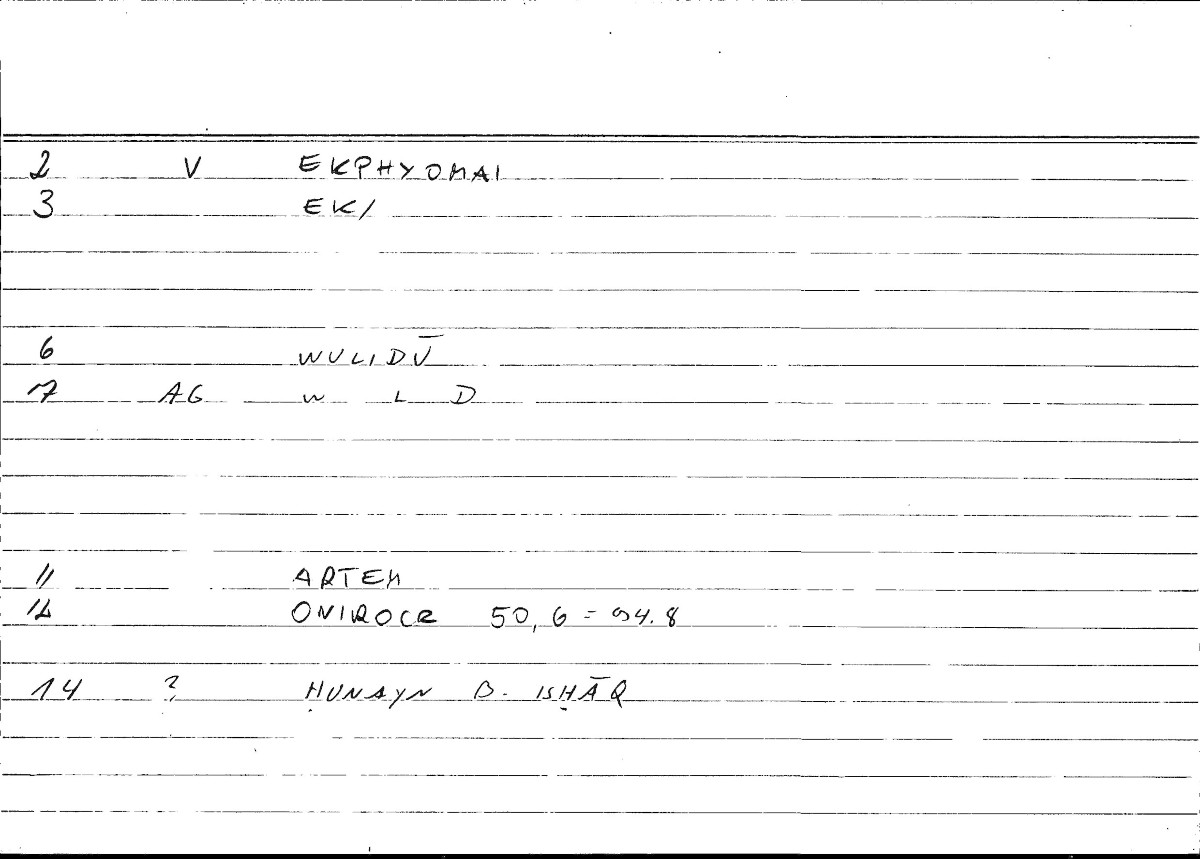 2 V EKPHYOMAI
3 EK/
6 WULIDŪ
7 AG W L D
11 ARTEM
12 ONIROCR 50, 6 = 94.8
14 ? ḤUNAYN B. ISḤĀQ